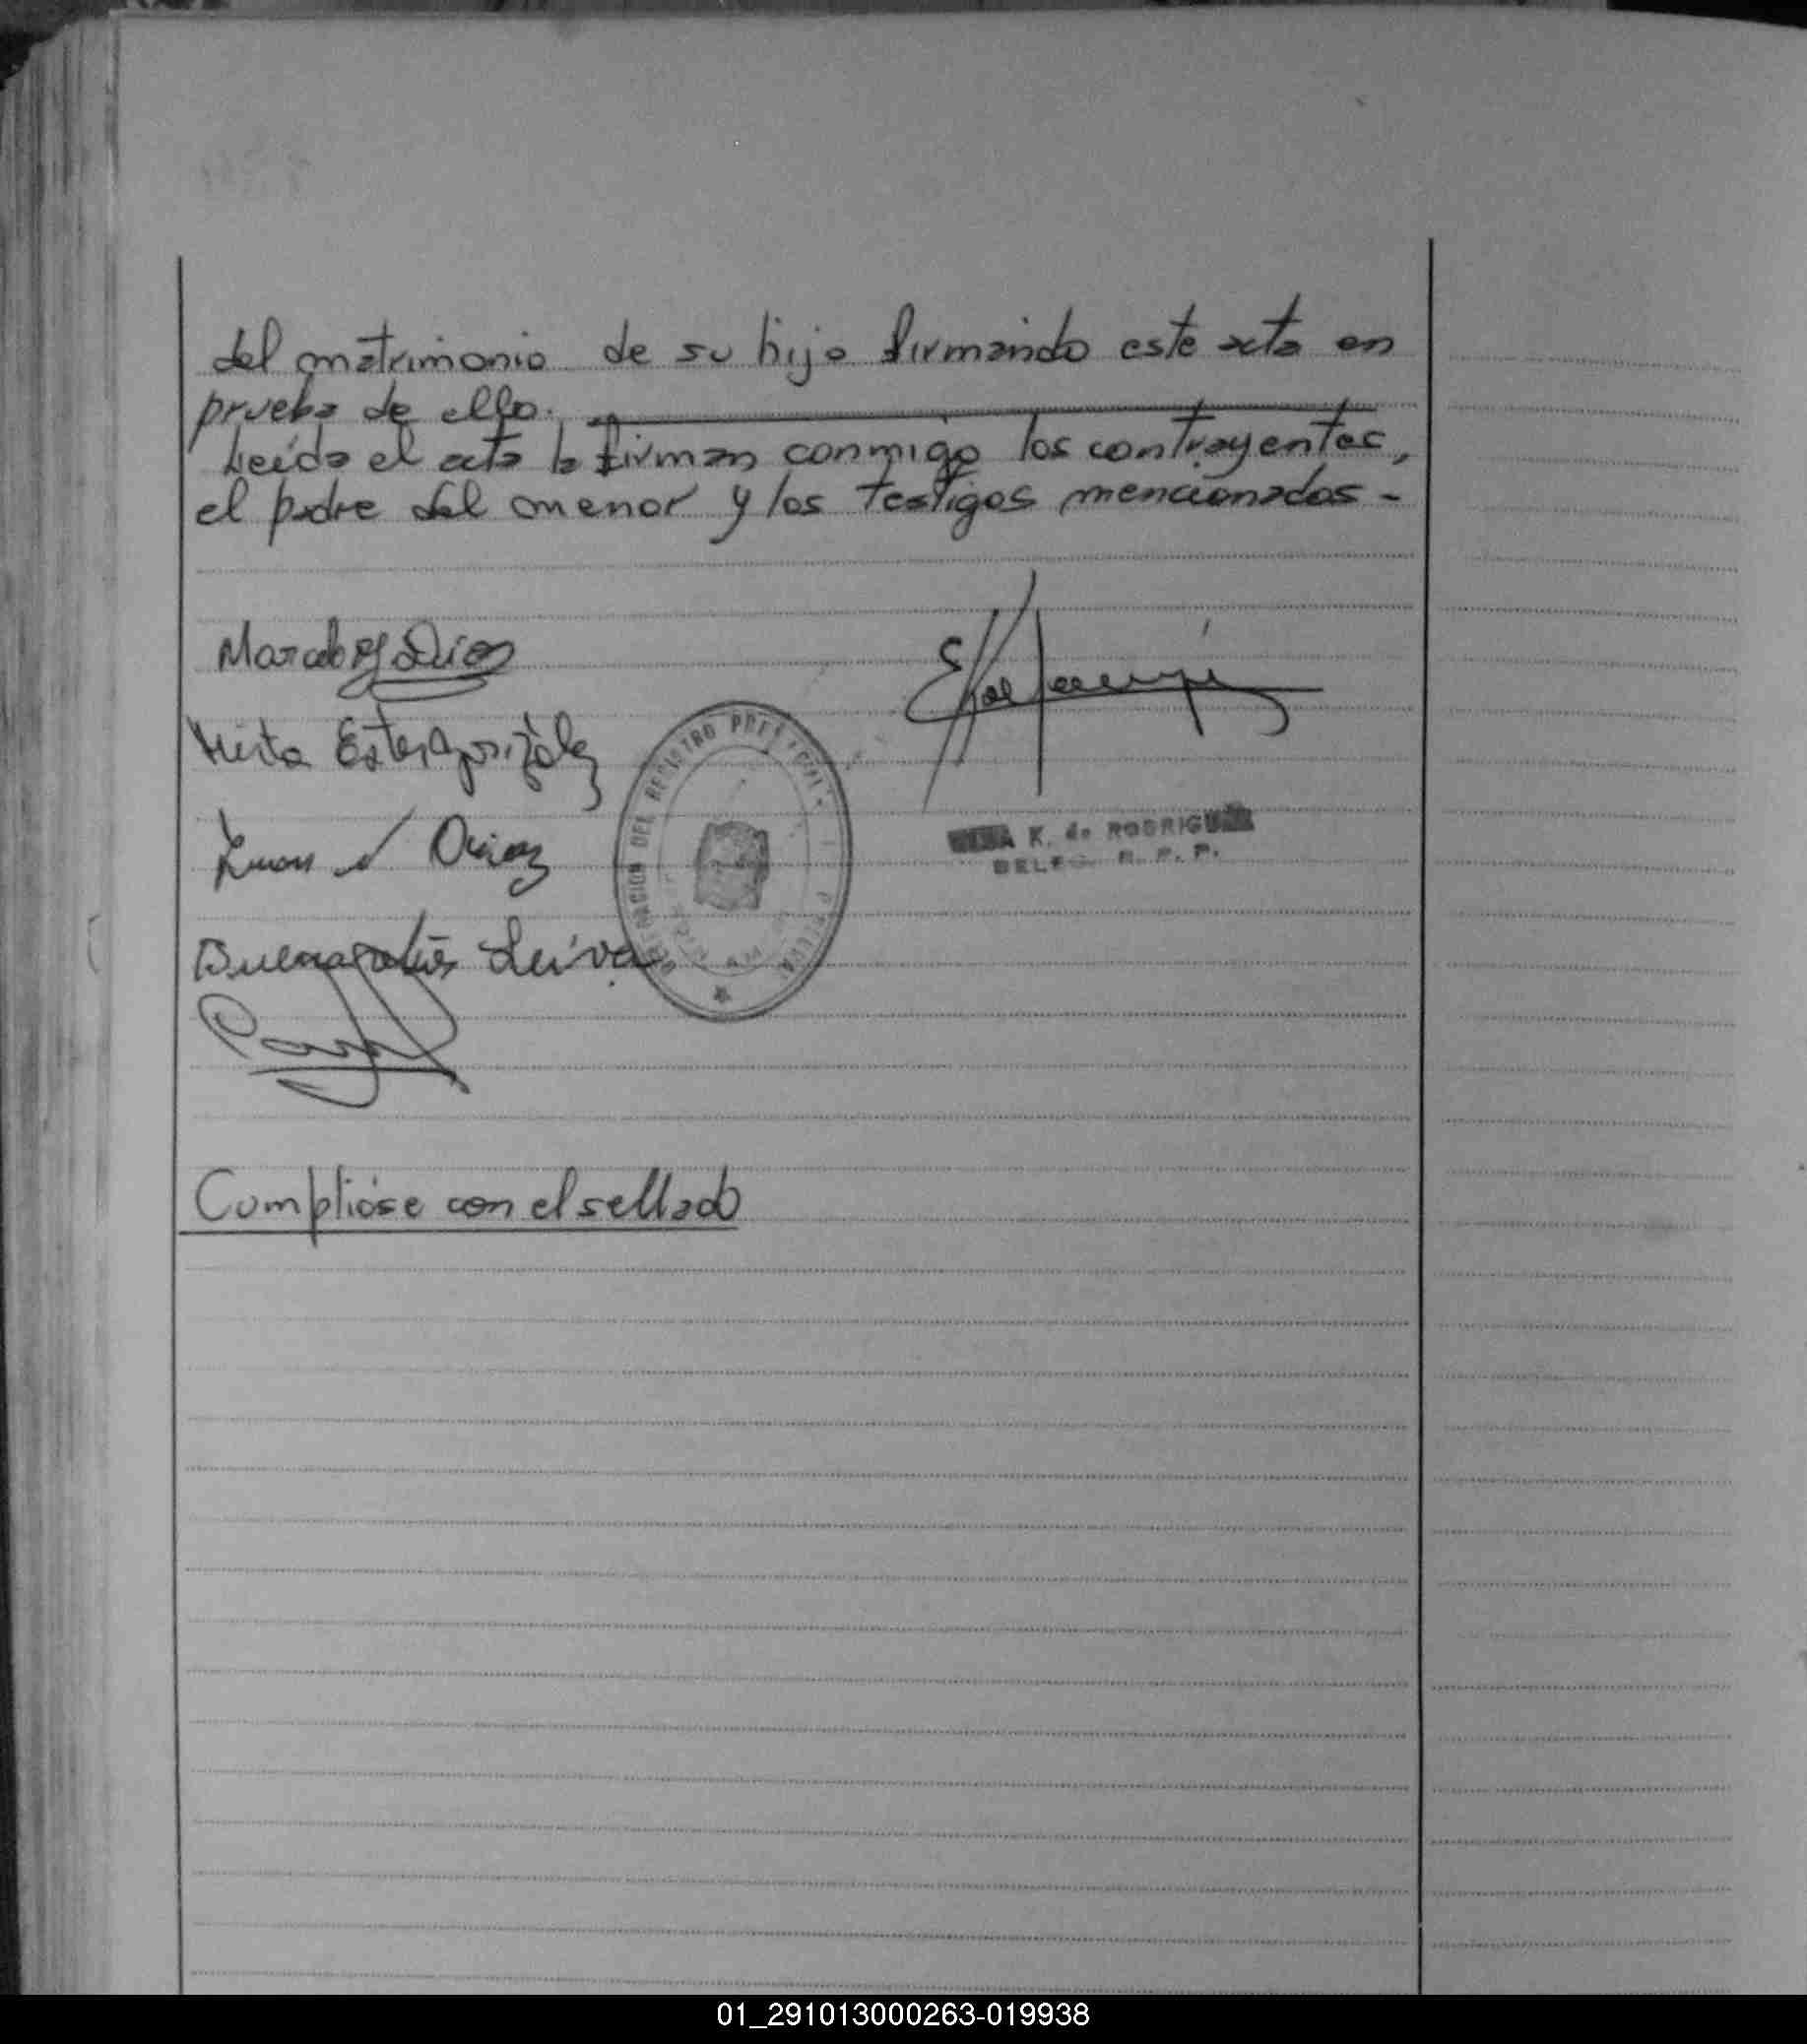 del matrimonio de su hijo firmando este acta en
prueba de ello.
Leída el acta la firman conmigo los contrayentes,
el padre del menor y los testigos mencionados -
Marcelo
Mirta Ester González
Juan
Buenaventura Leiva
DEL REGISTRO
K. de RODRIGUEZ
DELEG. R. P. P.
Cumplióse con el sellado
01_291013000263-019938